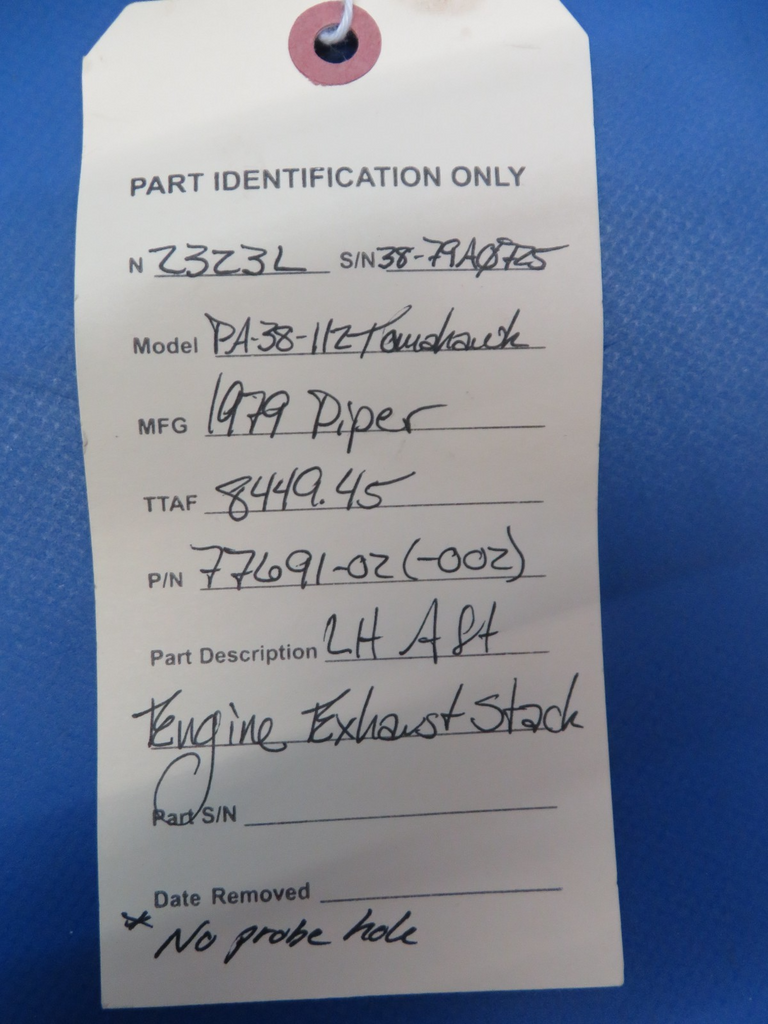 PART IDENTIFICATION ONLY
N 2323L S/N 38-79A0725
Model PA-38-112 Tomahawk
MFG 1979 Piper
TTAF 8449.45
P/N 77691-02 (-002)
Part Description LH Aft
Engine Exhaust Stack
Part S/N
Date Removed
* No probe hole